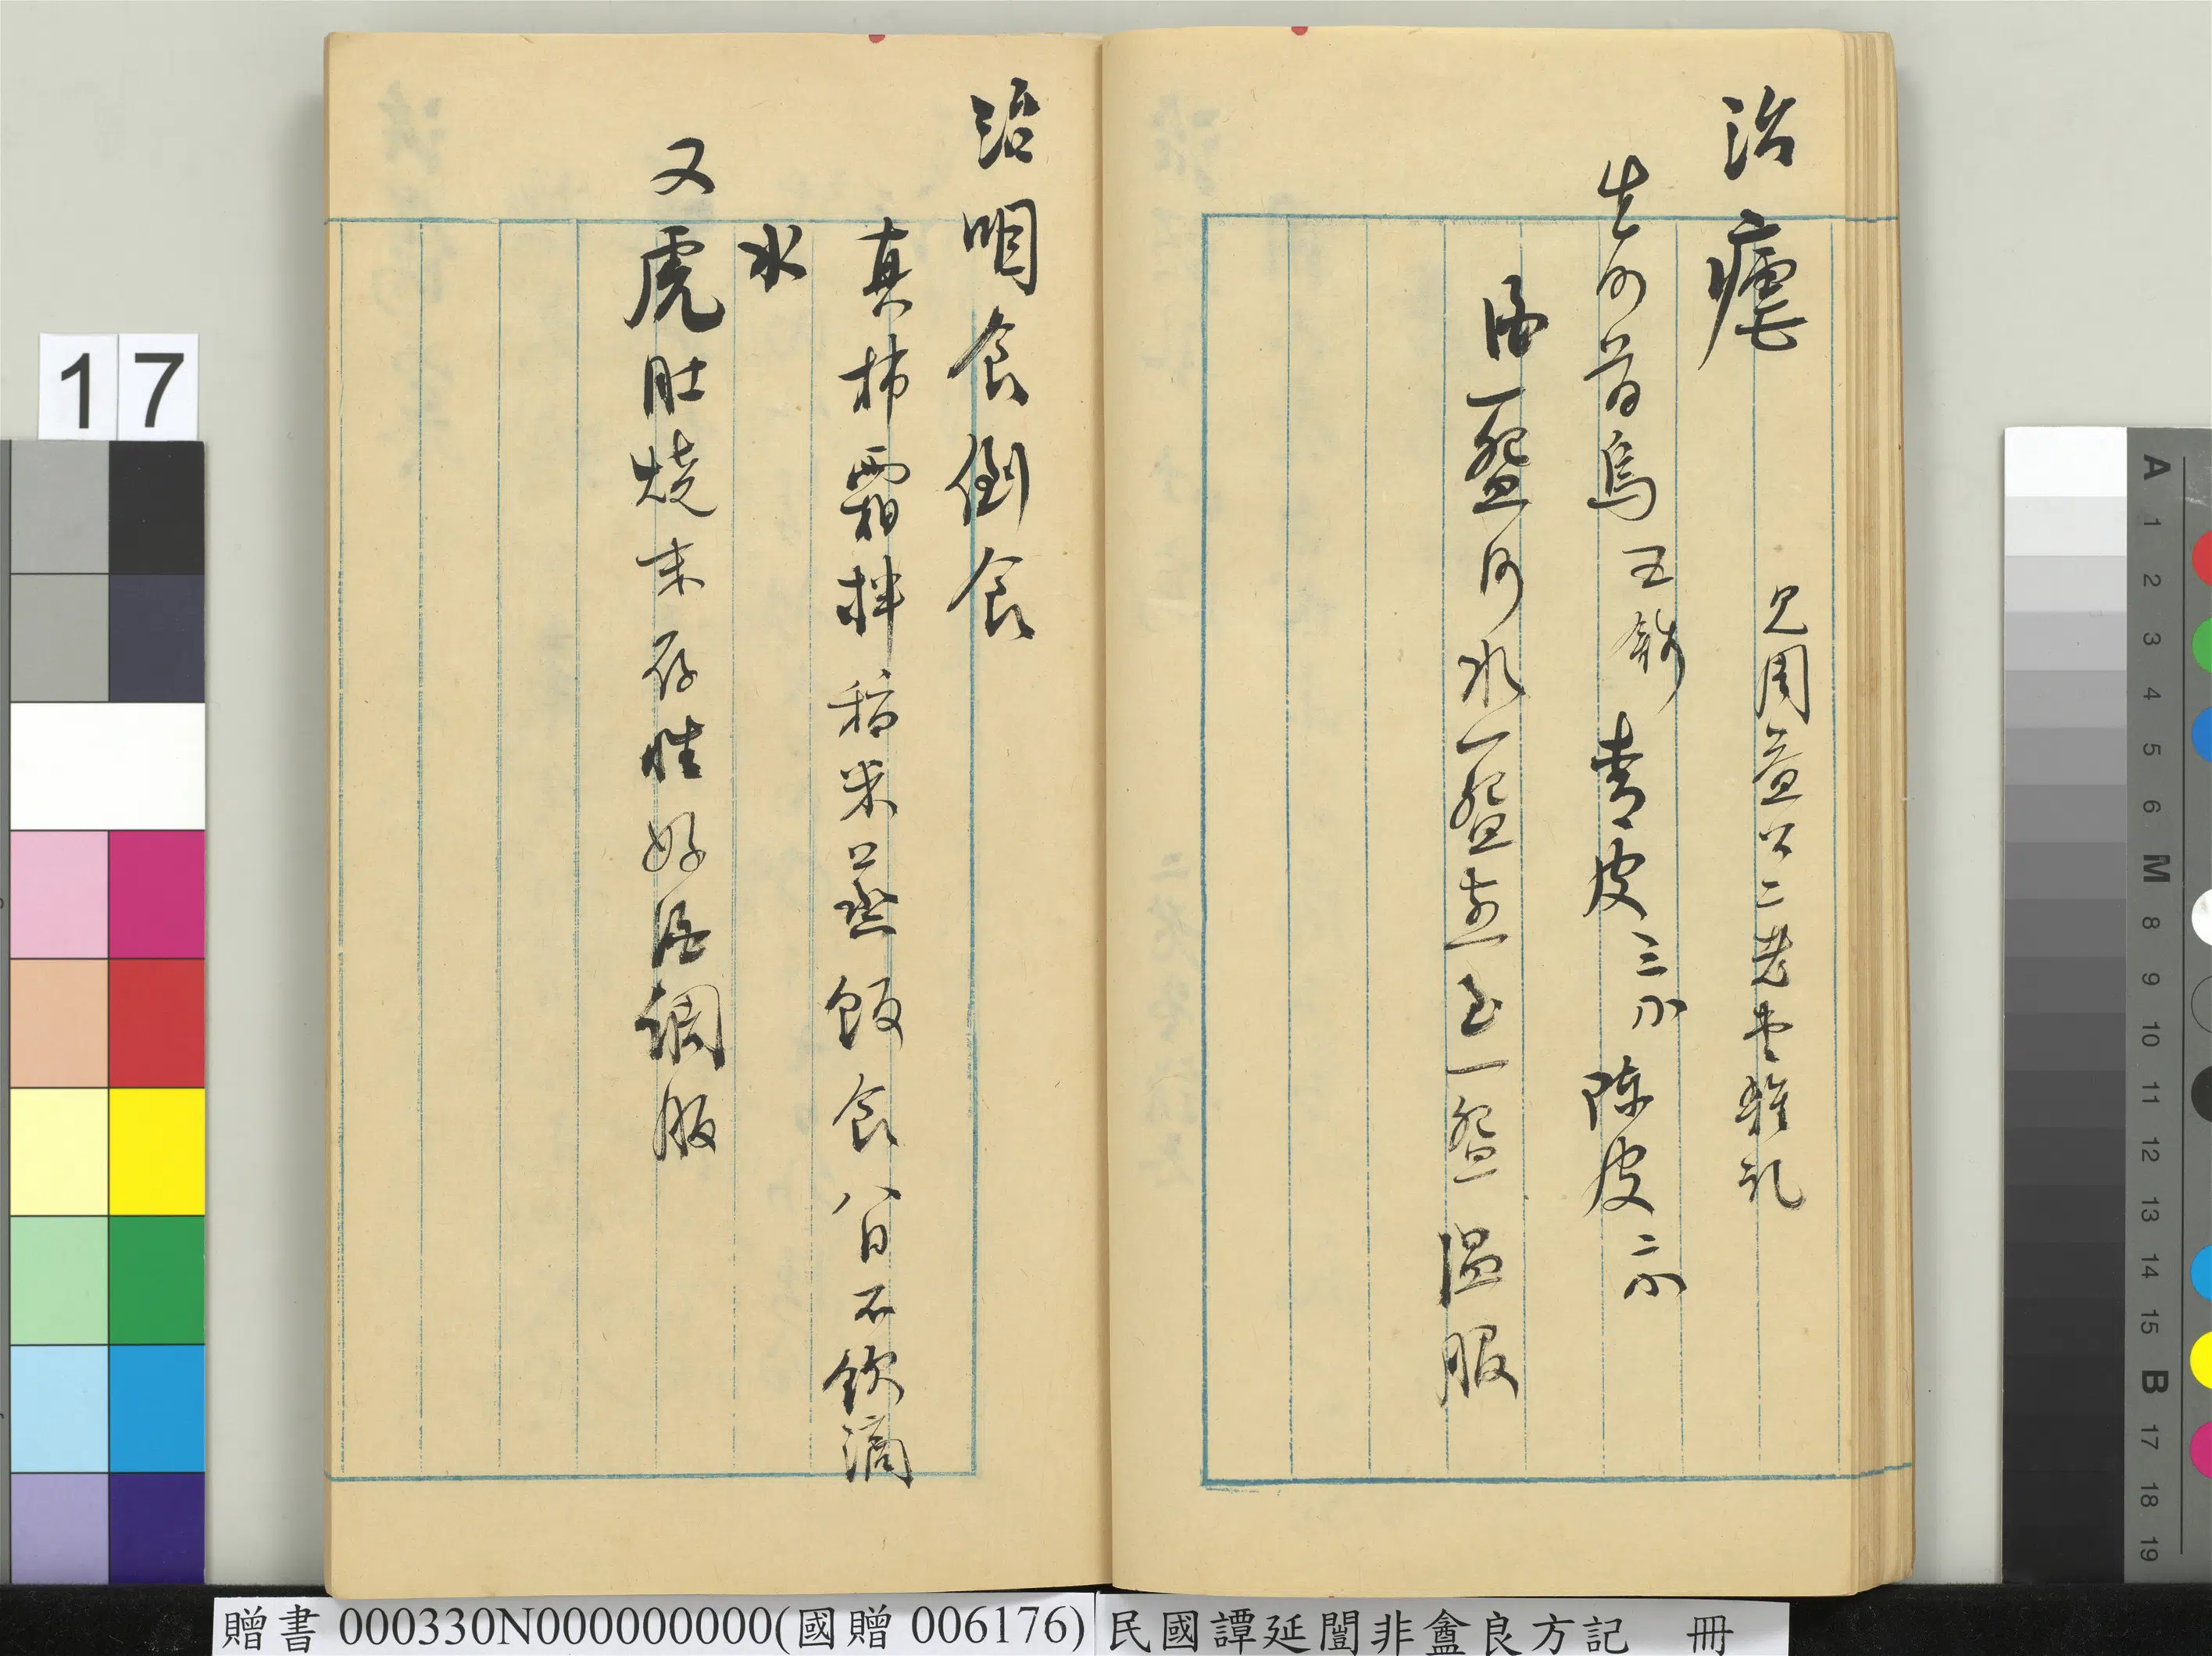 治瘧
見周益公二老堂雜記
生何首烏五錢青皮三分陳皮二分
酒一盌河水一盌煎至一盌溫服
治咽食倒食
真柿霜拌稻米蒸飯食八日不飲滴
水
又虎肚燒末存性好酒調服
17
贈書 000330N000000000(國贈 006176)
民國譚延闓非盦良方記 冊
A 1 2 3 4 5 6 M 8 9 10 11 12 13 14 15 B 17 18 19